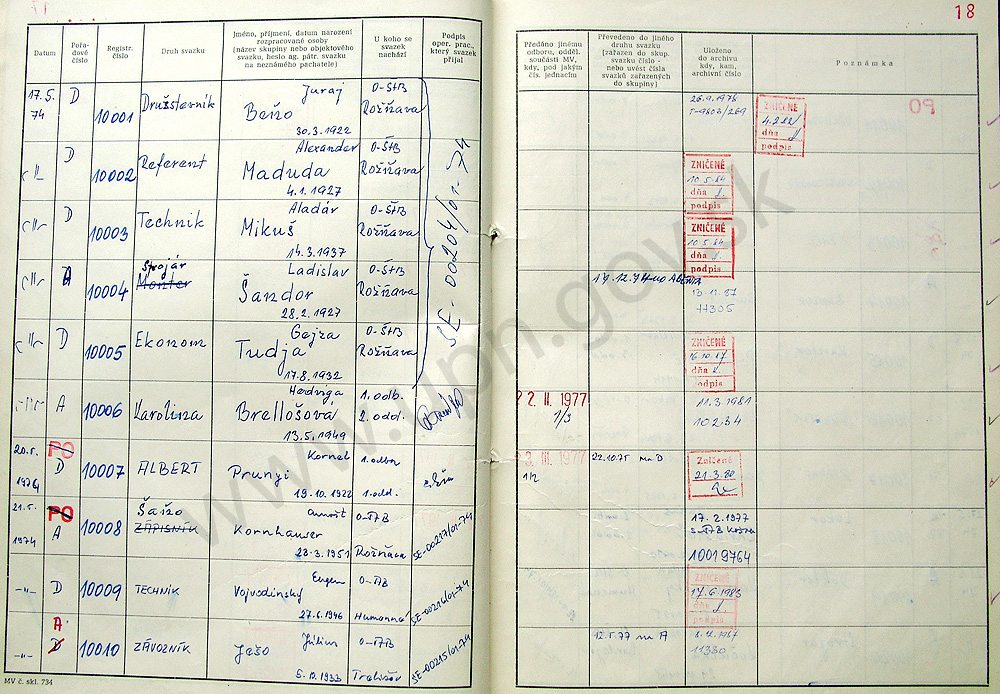 18
Datum
Pořadové číslo
Registr. číslo
Druh svazku
Jméno, příjmení, datum narození rozpracované osoby (název skupiny nebo objektového svazku, heslo ag. pátr. svazku na neznámého pachatele)
U koho se svazek nachází
Podpis oper. prac., který svazek přijal
Předáno jinému odboru, odděl. součásti MV, kdy, pod jakým čís. jednacím
Převedeno do jiného druhu svazku (zařazen do skup. svazku číslo - nebo uvést čísla svazků zařazených do skupiny)
Uloženo do archivu kdy, kam, archivní číslo
Poznámka
17.5. 74 D 10001 Družstevník Juraj Beňo 30.3.1922 O-ŠtB Rožňava
SE-00204/01-74
ZNIČENÉ
dňa
podpis
D 10002 Referent Alexander Maduda 4.1.1927 O-ŠtB Rožňava
ZNIČENÉ
10.5.84
dňa
podpis
D 10003 Technik Aladár Mikuš 14.3.1937 O-ŠtB Rožňava
ZNIČENÉ
10.5.84
dňa
podpis
A 10004 Strojár Monter Ladislav Šandor 28.2.1927 O-ŠtB Rožňava
11305
D 10005 Ekonom Gejza Tudja 17.8.1932 O-ŠtB Rožňava
ZNIČENÉ
16.10.87
dňa
podpis
A 10006 Karolina Hedviga Brellošová 13.5.1949 1. odb. 2. odd.
22. II. 1977
1/3
11.3.1981
10234
20.5. 1974 PO D 10007 ALBERT Kornel Prunyi 19.10.1922 1. odbor 1. odd.
3. III. 1977
22.10.75 na D
Zničené
21.3.80
21.5. 1974 PO A 10008 Šaňo ZÁPISNÍK Kornhauser 23.3.1951 Rožňava SE-00217/01-74
17.2.1977
10019764
-"- D 10009 TECHNIK Eugen Vojvodinský 27.6.1946 Humenné SE-00216/01-74
ZNIČENÉ
17.6.1983
dňa
podpis
A D 10010 ZÁVOZNÍK Július Ješo 5.10.1933 Trebišov SE-00215/01-74
12.5.77 na A
11330
MV č. skl. 734
www.upn.gov.sk